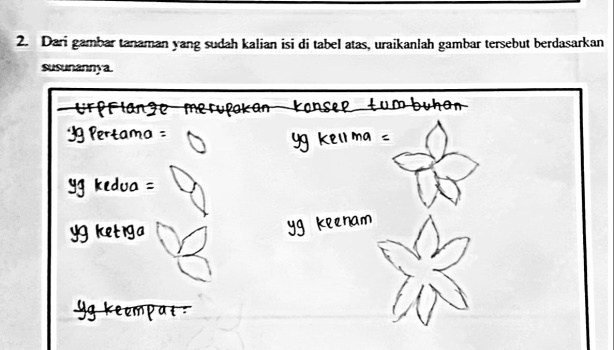 2. Dari gambar tanaman yang sudah kalian isi di tabel atas, uraikanlah gambar tersebut berdasarkan
susunannya.
merupakan konsep tumbuhan
yg Pertama =
yg kelima =
yg kedua =
yg ketiga
yg keenam
yg keempat =